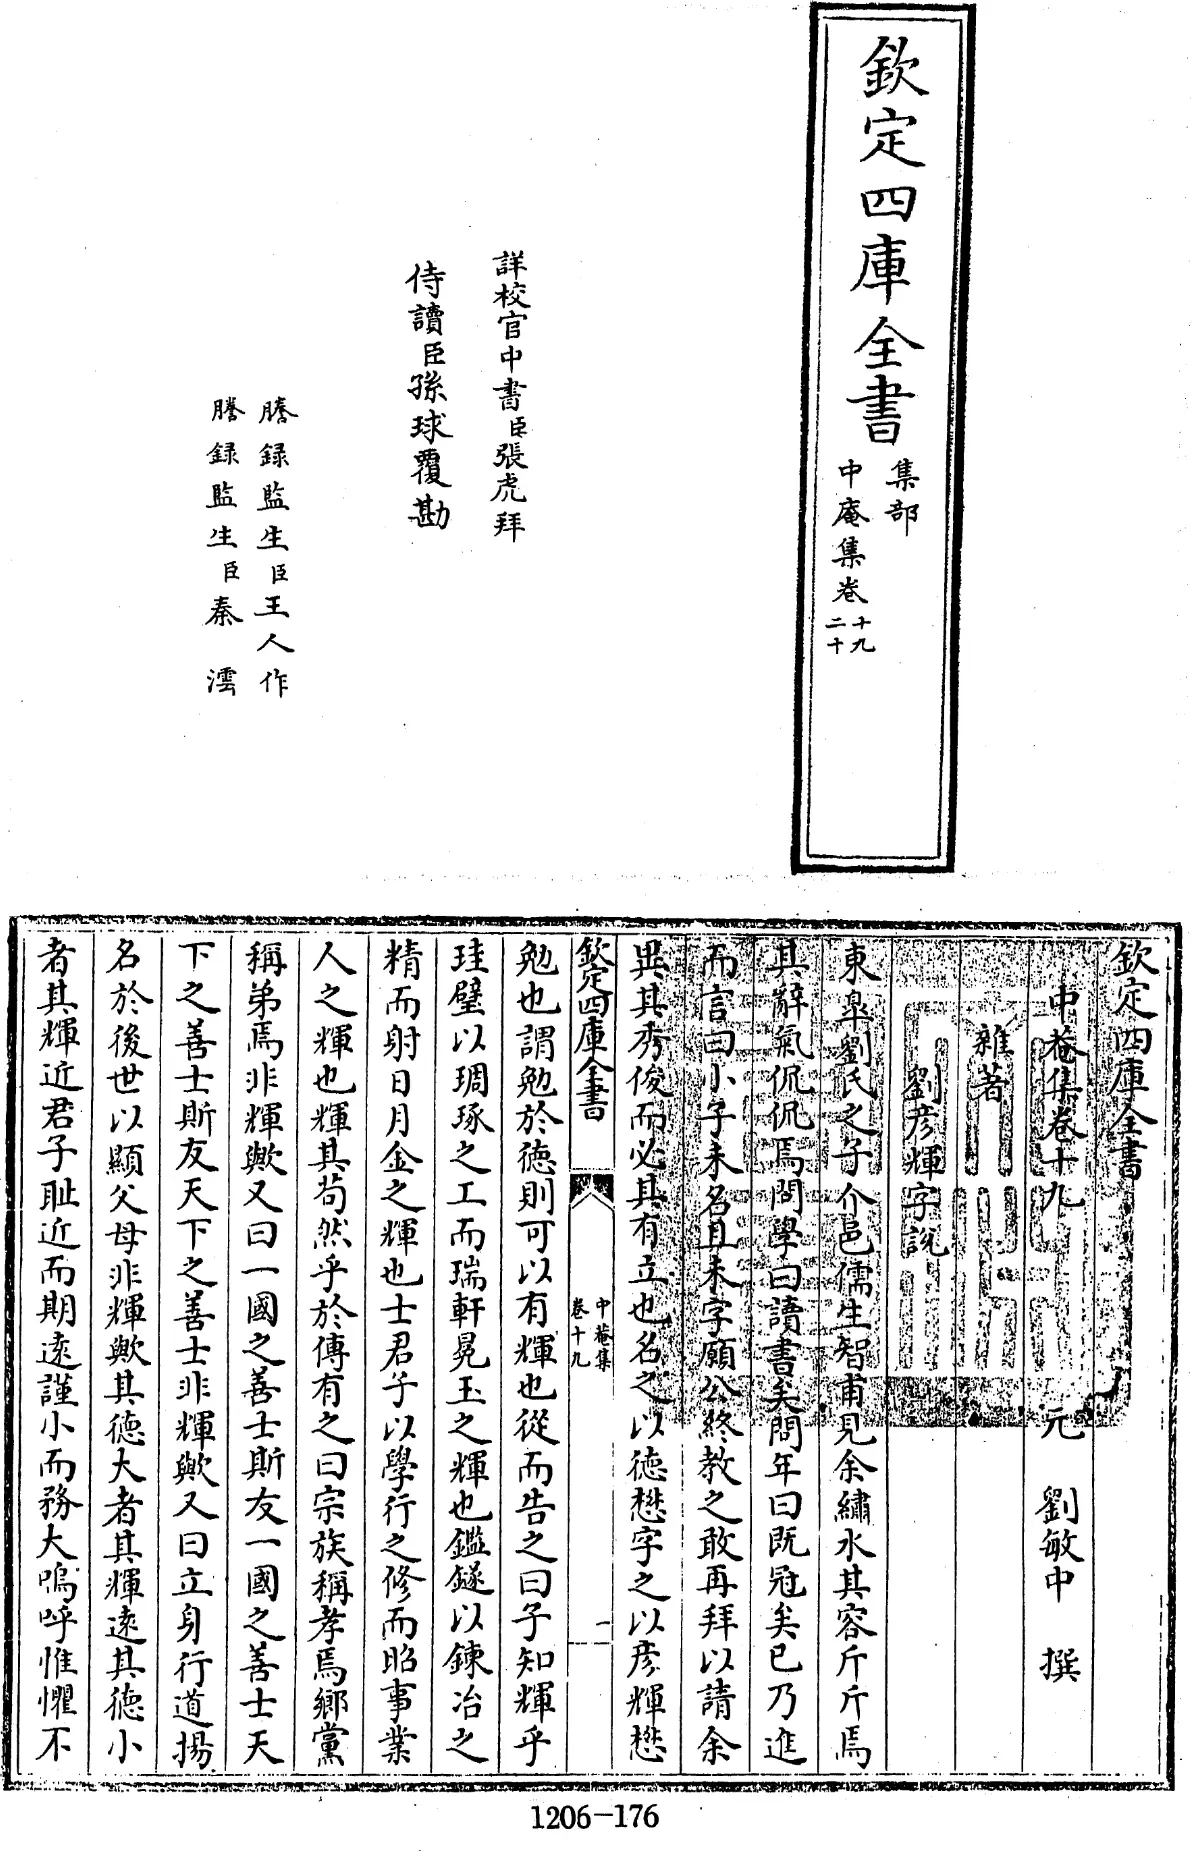 欽定四庫全書
集部
中庵集卷十九
二十
詳校官中書臣張虎拜
侍讀臣孫球覆勘
謄錄監生臣王人作
謄錄監生臣秦澐
欽定四庫全書
中菴集卷十九
元 劉敏中 撰
雜著
劉彥輝字說
東臯劉氏之子介邑儒生智甫見余繡水其容斤斤焉
其辭氣侃侃焉問學曰讀書矣問年曰既冠矣已乃進
而言曰小子未名且未字願公終教之敢再拜以請余
異其秀俊而必其有立也名之以德懋字之以彥輝懋
欽定四庫全書
中菴集
卷十九
一
勉也謂勉於德則可以有輝也從而告之曰子知輝乎
珪璧以琱琢之工而瑞軒冕玉之輝也鑑鐩以鍊冶之
精而射日月金之輝也士君子以學行之修而昭事業
人之輝也輝其苟然乎於傳有之曰宗族稱孝焉鄉黨
稱弟焉非輝歟又曰一國之善士斯友一國之善士天
下之善士斯友天下之善士非輝歟又曰立身行道揚
名於後世以顯父母非輝歟其德大者其輝遠其德小
者其輝近君子耻近而期遠謹小而務大嗚呼惟懼不
1206-176